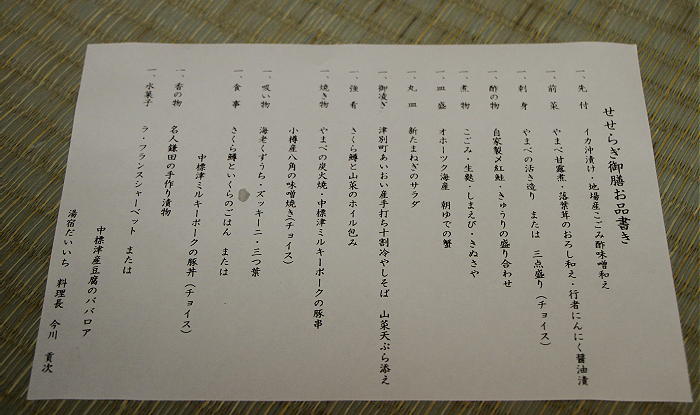 せせらぎ御膳お品書き
一、先 付 イカ沖漬け・地場産こごみ酢味噌和え
一、前 菜 やまべ甘露煮・落葉茸のおろし和え・行者にんにく醤油漬
一、刺 身 やまべの活き造り または 三点盛り（チョイス）
一、酢の物 自家製〆紅鮭・きゅうりの盛り合わせ
一、煮 物 こごみ・生麩・しまえび・きぬさや
一、皿 盛 オホーツク海産 朝ゆでの蟹
一、丸 皿 新たまねぎのサラダ
一、御凌ぎ 津別町あいおい産手打ち十割冷やしそば 山菜天ぷら添え
一、強 肴 さくら鱒と山菜のホイル包み
一、焼き物 やまべの炭火焼・中標津ミルキーポークの豚串
小樽産八角の味噌焼き（チョイス）
一、吸い物 海老くずうち・ズッキーニ・三つ葉
一、食 事 さくら鱒といくらのごはん または
中標津ミルキーポークの豚丼（チョイス）
一、香の物 名人鎌田の手作り漬物
一、水菓子 ラ・フランスシャーベット または
中標津産豆腐のババロア
湯宿だいいち 料理長 今川 貢次